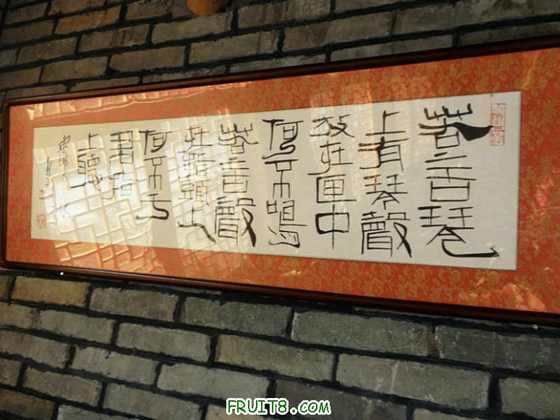 若言琴
上有琴聲
放在匣中
何不鳴
若言聲
在指頭上
何不于
君指
上聽
FRUIT8.COM